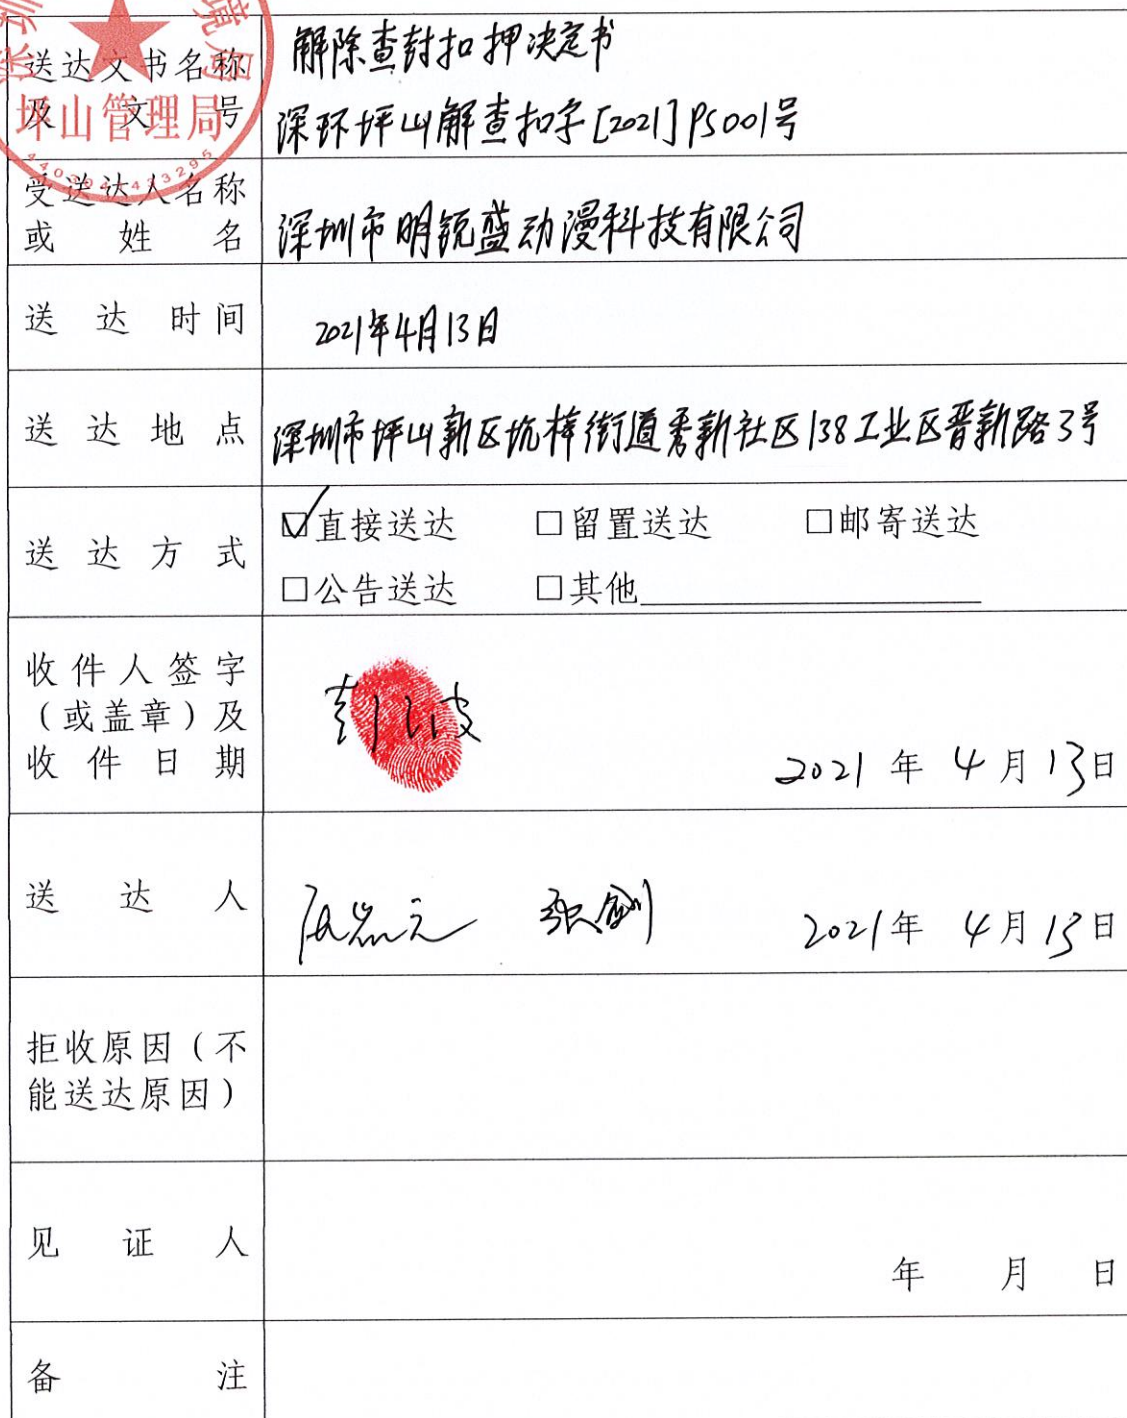 深圳
境局
坪山管理局
4403047433295
送达文书名称
及文号
解除查封扣押决定书
深环坪山解查扣字[2021]PS001号
受送达人名称
或姓名
深圳市明锐盛动漫科技有限公司
送达时间
2021年4月13日
送达地点
深圳市坪山新区坑梓街道秀新社区138工业区晋新路3号
送达方式
☑直接送达 □留置送达 □邮寄送达
□公告送达 □其他
收件人签字
（或盖章）及
收件日期
2021年4月13日
送达人
2021年4月13日
拒收原因（不
能送达原因）
见证人
年 月 日
备注